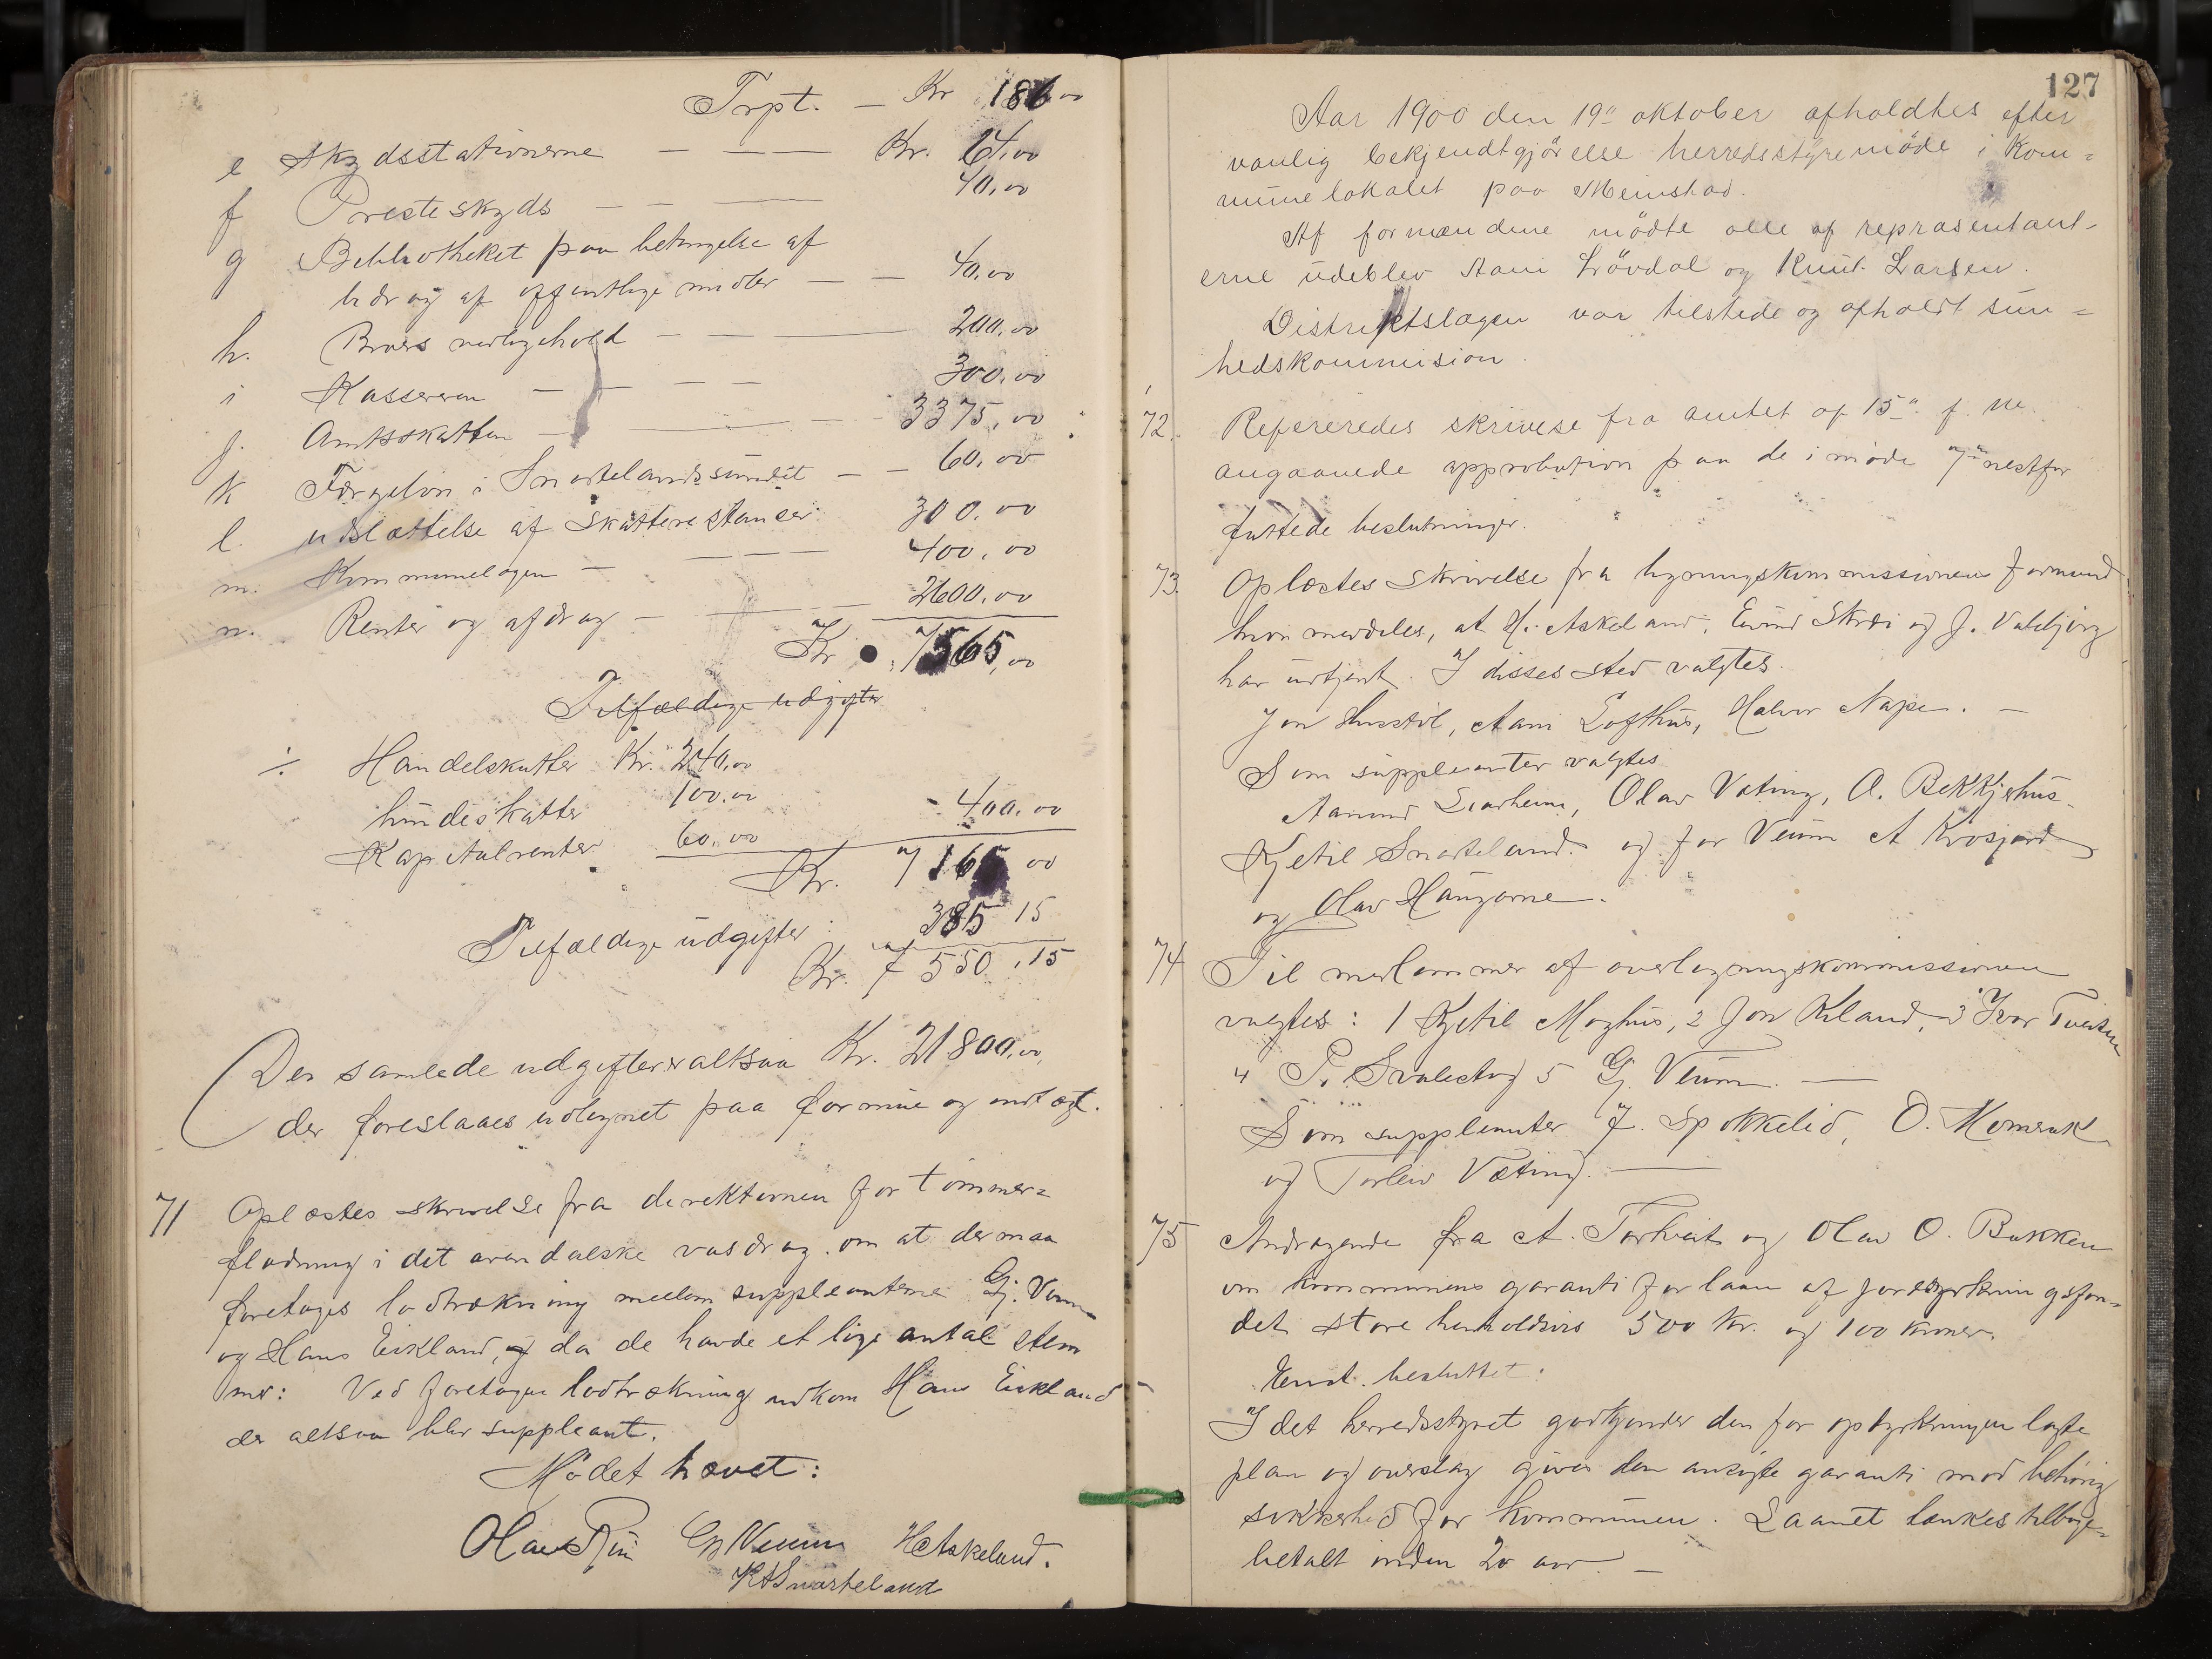 Trpt. — Kr 186.00
e Skydsstationerne — — — Kr. 64,00
f Presteskyds — — — 40,00
g Bibliotheket paa betingelse af
bidrag af offentlige midler — — 40,00
h. Broers vedligehold — — — 200,00
i Kassereren — — — — 300,00
j. Amtsskatten — — — 3375,00
k Færgeløn i Snartelandssundet — — 60,00
l. udslættelse af Skatterestanser 300.00
m. Kommunelægen — — — — 400,00
n. Renter og afdrag — — — 2600,00
Kr. 7565,00
Tilfældige udgifter
÷ Handelskatter Kr. 240,00
hundeskatter 100,00 - 400,00
Kapitalrenter 60,00
Kr. 7165 00
Tilfældige udgifter: 385 15
Kr. 7550,15
De samlede udgifter er altsaa Kr. 21800,00,
der foreslaaes udlignet paa formue og indtægt.
71 Oplæstes skrivelse fra direktionen for tømmer=
flødning i det arendalske vasdrag. om at der maa
foretages lodtrækning mellem suppleanterne Gj. Veum
og Hans Eikland, da de havde et lige antal stem
mer: Ved foretagen lodtrækning udkom Hans Eikland
der altsaa blir suppleant.
Mødet hævet:
Olav Rui Gj Veum H Askeland.
K A Snarteland
127
Aar 1900 den 19de oktober afholdtes efter
vanlig bekjendtgjørelse herredsstyremøde i Kom=
munelokalet paa Meinstad.
Af formændene mødte alle af repræsentant-
erne udeblev Aani Løvdal og Knut Larsen.
Distriktslægen var tilstede og afholdt sun=
hedskommision.
72. Refereredes skrivese fra amtet af 15de f. m.
angaaende approbation paa de i møde 7de nestfør
fattede beslutninger.
73. Oplæstes skrivelse fra ligningskommissionens formand
hvori meddeles, at H. Askeland, Eivind Skræi og J. Valebjørg
har udtjent. I disses sted valgtes.
Jon Husstøl, Aani Lofthus, Halvor Nape. —
Som suppleanter valgtes
Aanund Learheim, Olav Vøting, A. Bekkjehus-
Kjetil Snarteland. og for Veum A Krosjord
og Olav Haugane.
74 Til medlemmer af overligningskommissionen
valgtes: 1 Kjetil Moghus, 2 Jon Kiland, 3 Ivar Tveiten
4 P. Svalestog 5 Gj. Veum. —
Som suppleanter J. Spokkelid, O. Momrak
og Torleiv Vøting. —
75 Andragende fra A. Tortveit og Olav O. Bakken
om kommunens garanti for laan af jorddyrkningsfon=
det store henholdsvis 500 kr. og 100 kroner.
Enst. besluttet:
I det herredsstyret godkjender den for opdyrkningen lagte
plan og overslag gives den ansøgte garanti mod behørig
sikkerhed for kommunen. Laanet tænkes tilbage=
betalt inden 20 aar. —